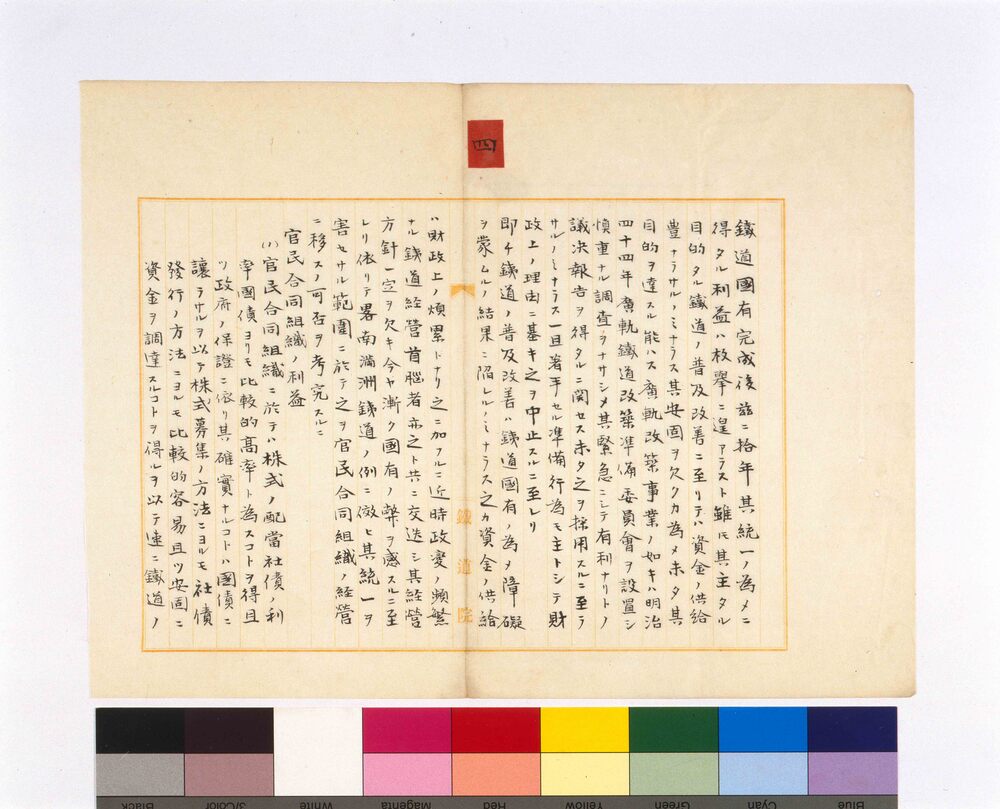 四
鐵道國有完成後茲ニ拾年其統一ノ為メニ
得タル利益ハ枚擧ニ遑アラスト雖𪜈其主タル
目的タル鐵道ノ普及改善ニ至リテハ資金ノ供給
豊ナラサルノミナラス其安固ヲ欠クカ為メ未タ其
目的ヲ達スル能ハス廣軌改築事業ノ如キハ明治
四十四年廣軌鐵道改築準備委員會ヲ設置シ
慎重ナル調査ヲナサシメ其緊急ニシテ有利ナリトノ
議決報告ヲ得タルニ関セス未タ之ヲ採用スルニ至ラ
サルノミナラス一旦着手セル準備行為モ主トシテ財
政上ノ理由ニ基キ之ヲ中止スルニ至レリ
即チ鉄道ノ普及改善ハ鉄道國有ノ為メ障礙
ヲ蒙ムルノ結果ニ陥レルノミナラス之カ資金ノ供給
鐵道院
ハ財政上ノ煩累トナリ之ニ加フルニ近時政変ノ頻繁
ナル鉄道経營首脳者亦之ト共ニ交迭シ其経營
方針一定ヲ欠キ今ヤ漸ク國有ノ弊ヲ感スルニ至
レリ依リテ畧南満洲鉄道ノ例ニ傚ヒ其統一ヲ
害セサル範圍ニ於テ之ヲ官民合同組織ノ経營
ニ移スノ可否ヲ考究スルニ
官民合同組織ノ利益
(ハ)官民合同組織ニ於テハ株式ノ配當社債ノ利
率國債ヨリモ比較的高率ト為スコトヲ得且
ツ政府ノ保證ニ依リ其確實ナルコトハ國債ニ
讓ラサルヲ以テ株式募集ノ方法ニヨルモ社債
發行ノ方法ニヨルモ比較的容易且ツ安固ニ
資金ヲ調達スルコトヲ得ルヲ以テ速ニ鐵道ノ
Black
3/Color
White
Magenta
Red
Yellow
Green
Cyan
Blue